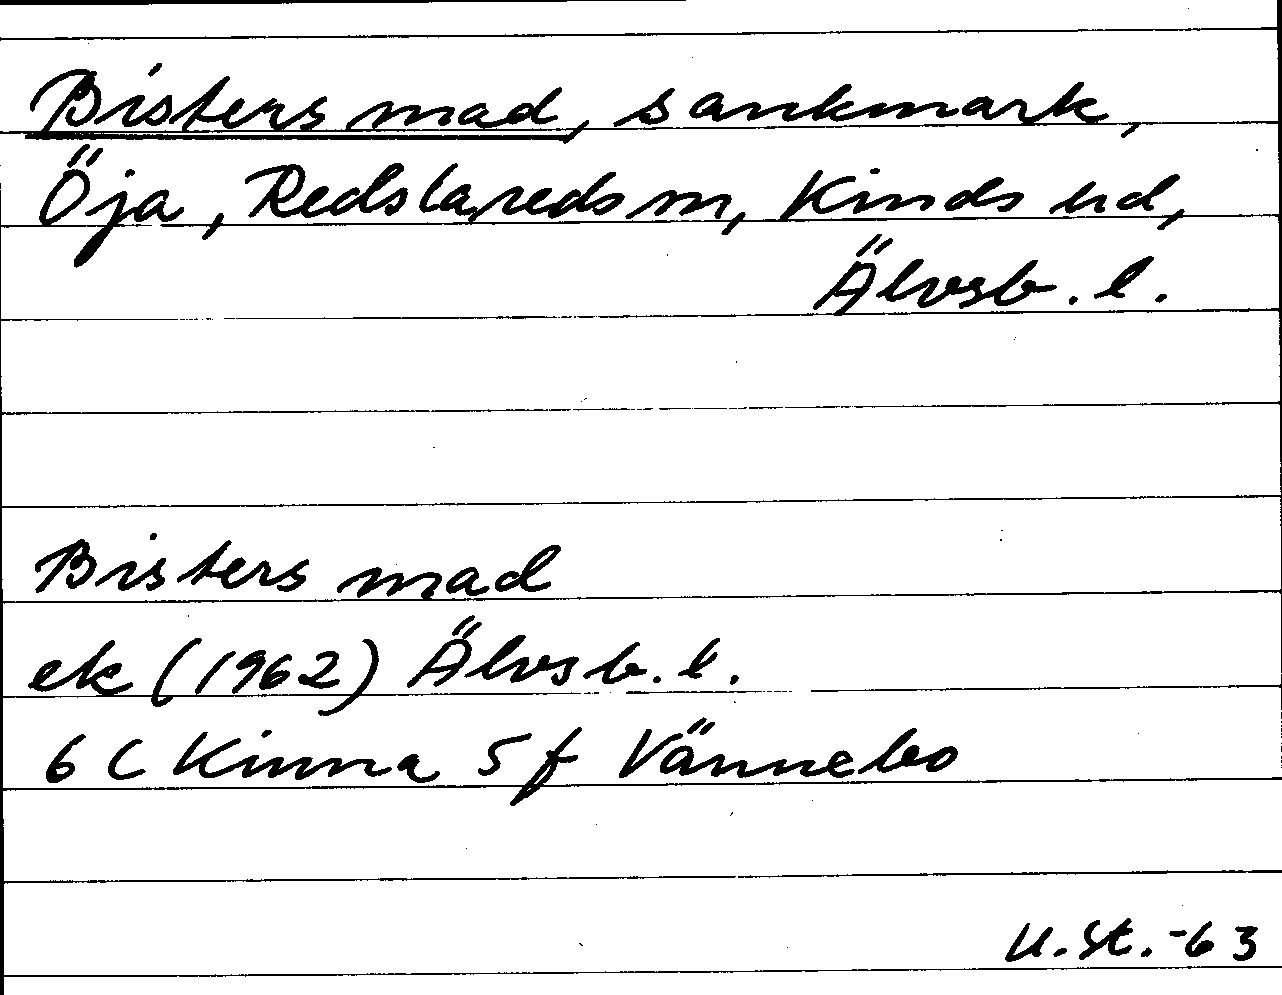 Bisters mad, sankmark,
Öja, Redslareds sn, Kinds hd,
Älvsb. l.
Bisters mad
ek (1962) Älvsb. l.
6 C Kinna 5 f Vännebo
U. St. -63